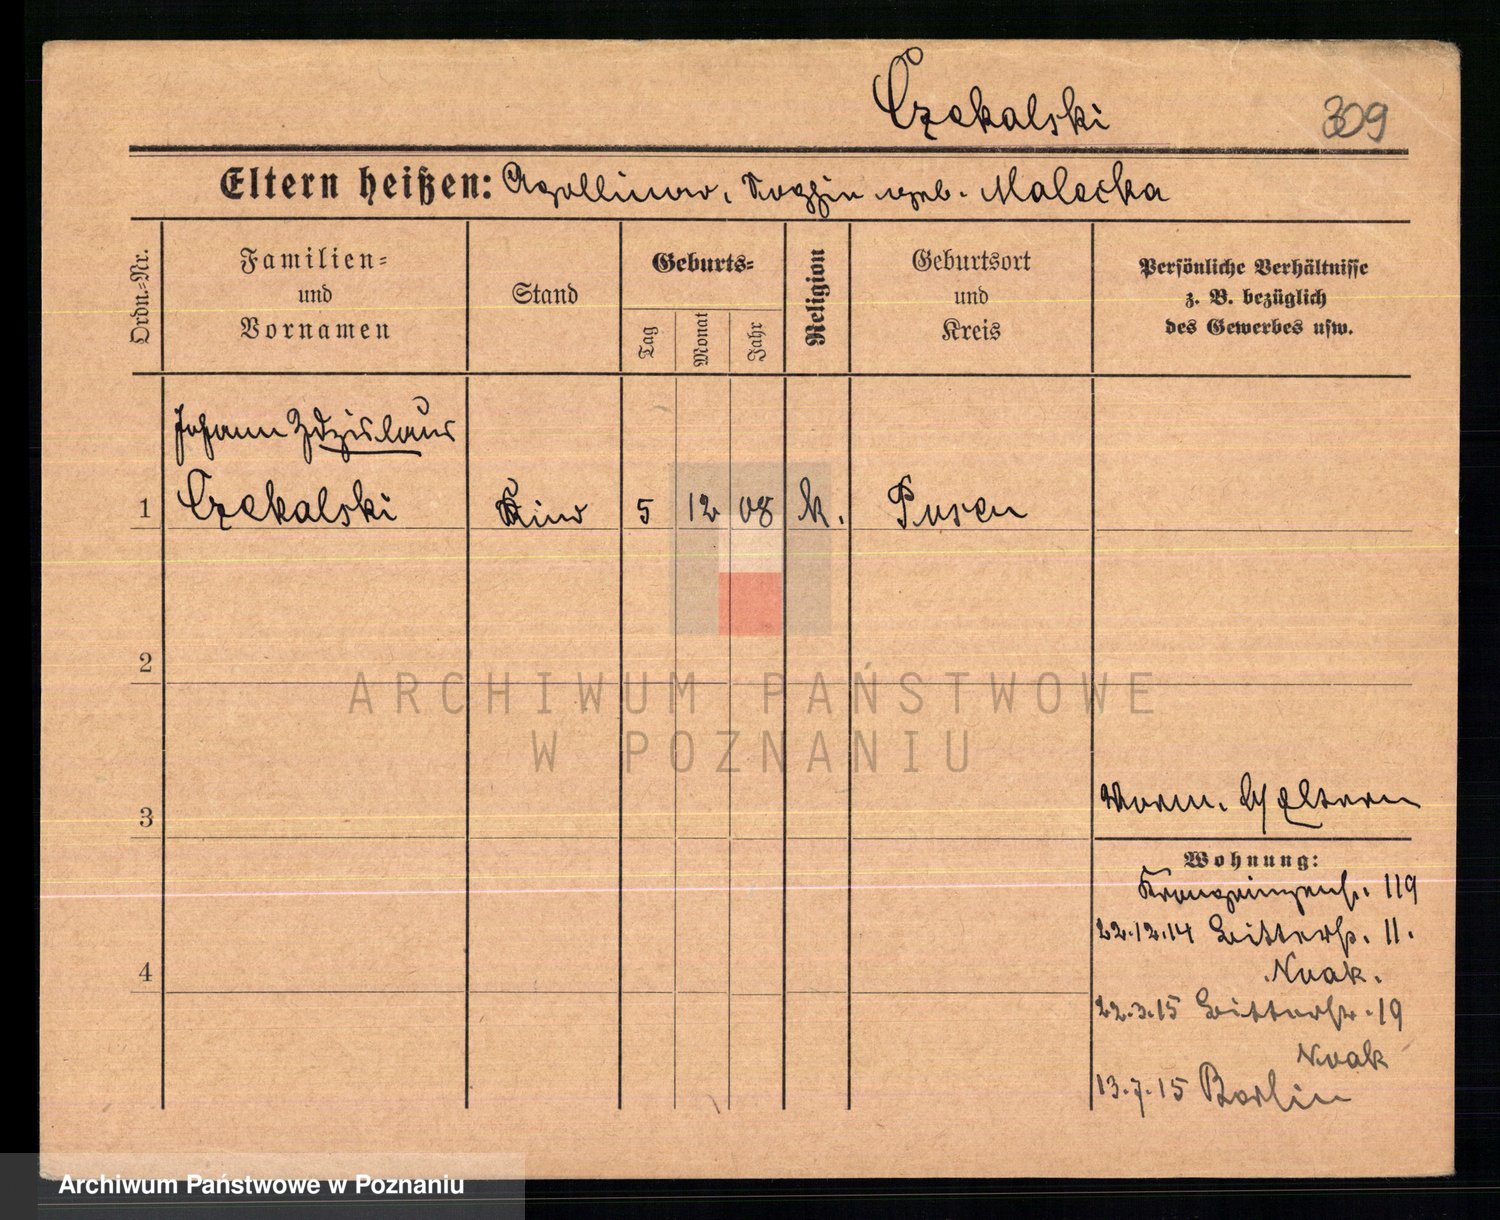 Czekalski 309
Eltern heißen: Apollinar, Sophie geb. Malecka
Ordn.-Nr.
Familien-
und
Vornamen
Stand
Geburts-
Tag
Monat
Jahr
Religion
Geburtsort
und
Kreis
Persönliche Verhältnisse
z. B. bezüglich
des Gewerbes usw.
Johann Zdzislaus
1 Czekalski Kind 5 12 08 k. Posen
2
ARCHIWUM PAŃSTWOWE
W POZNANIU
3
Eltern
Wohnung:
Kronprinzenstr. 119
22.12.14 Bitterstr. 11.
Noak.
4
22.3.15 Bitterstr. 19
Noak
13.7.15 Berlin
Archiwum Państwowe w Poznaniu